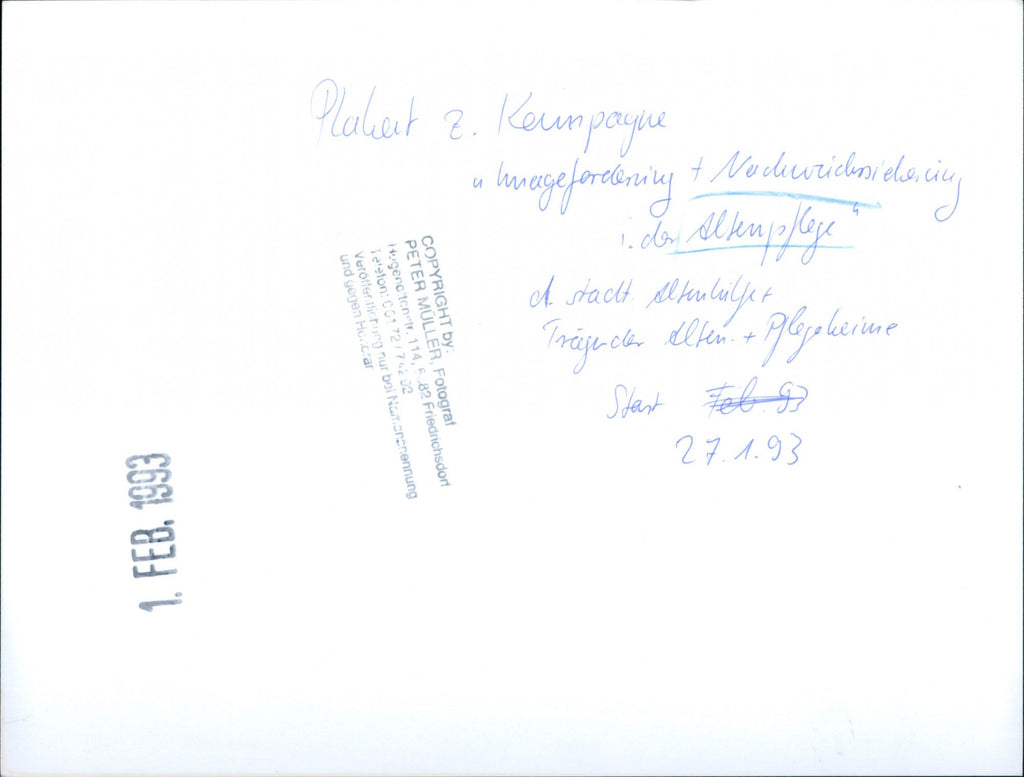 Plakat z. Kampagne
"Imageförderung + Nachwuchssicherung
i. der Altenpflege"
d. städt. Altenhilfe +
Träger der Alten- + Pflegeheime
Start Feb. 93
27.1.93
COPYRIGHT by:
PETER MÜLLER, Fotograf
Hugenottenstr. 114, 6382 Friedrichsdorf
Telefon: 06172 /
Veröffentlichung nur bei Namensnennung
und gegen Honorar
1. FEB. 1993